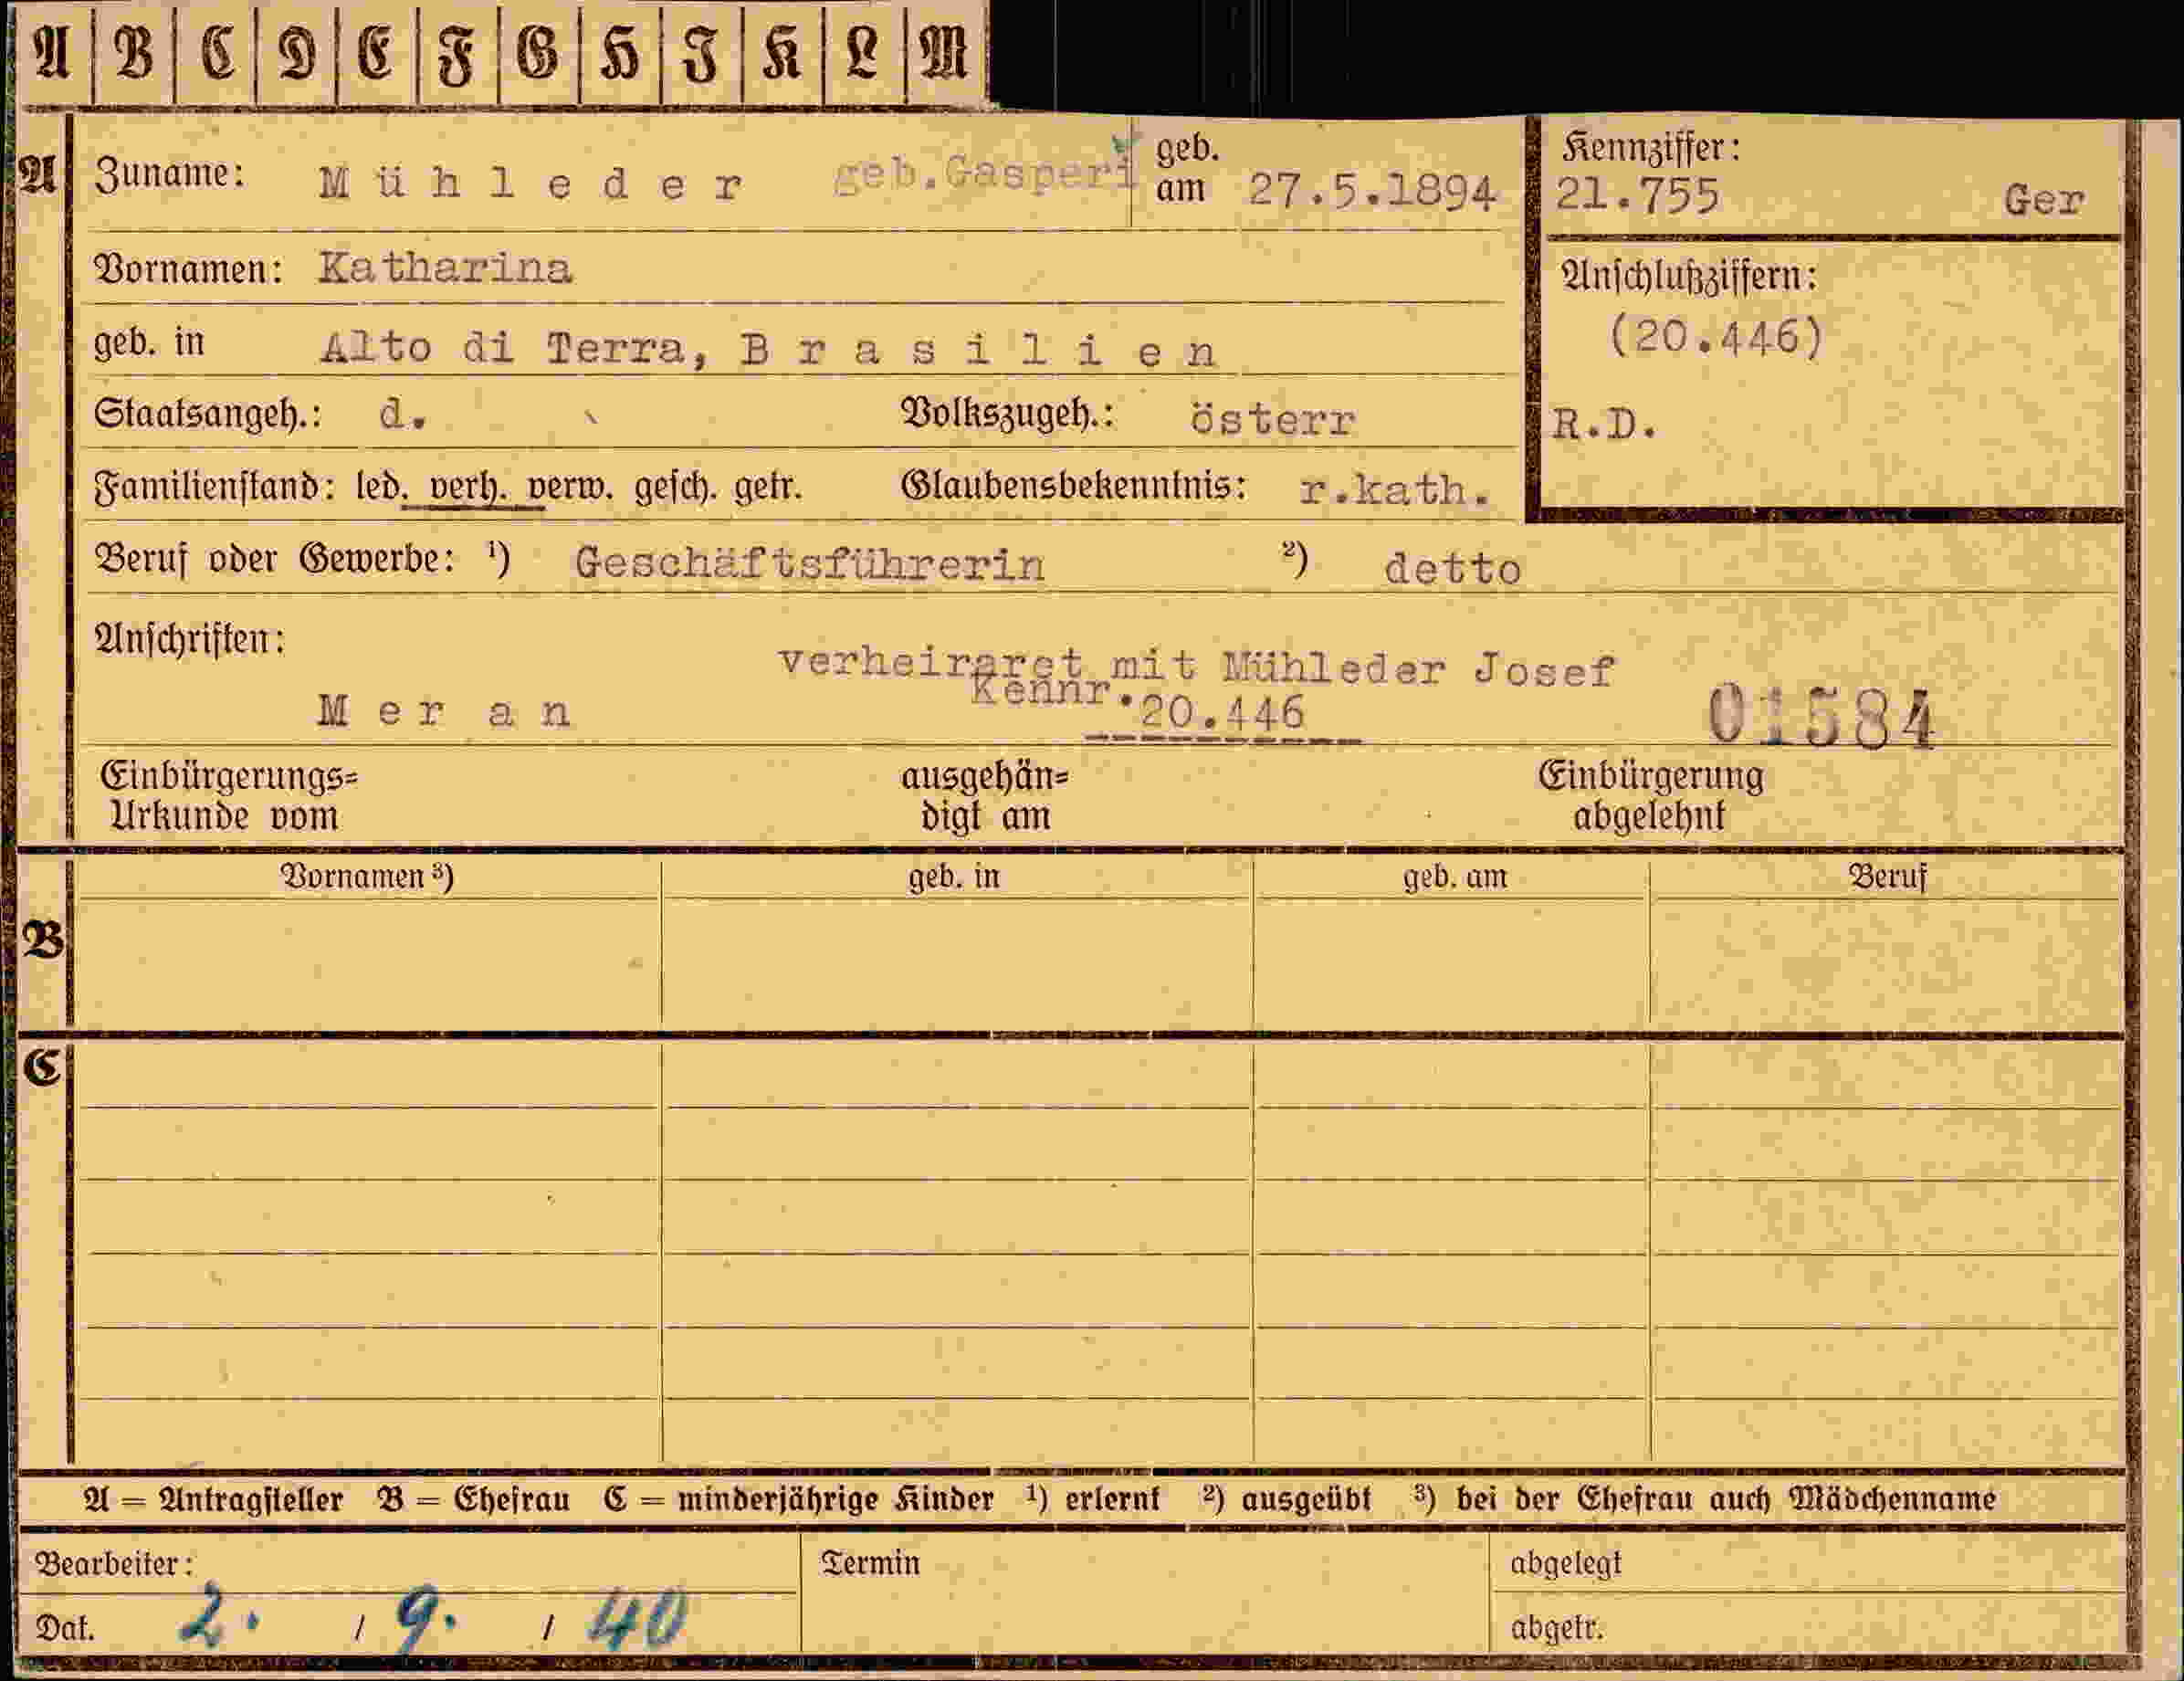 A B C D E F G H I K L M
A Zuname: Mühleder geb.Gasperi geb. am 27.5.1894
Kennziffer:
21.755 Ger
Vornamen: Katharina
Anschlußziffern:
(20.446)
geb. in Alto di Terra, Brasilien
Staatsangeh.: d. Volkszugeh.: österr
R.D.
Familienstand: led. verh. verw. gesch. getr. Glaubensbekenntnis: r.kath.
Beruf oder Gewerbe: ¹) Geschäftsführerin ²) detto
Anschriften:
verheiraret mit Mühleder Josef
Kennr.20.446
Meran
01584
Einbürgerungs=
Urkunde vom
ausgehän=
digt am
Einbürgerung
abgelehnt
Vornamen ³) geb. in geb. am Beruf
B
C
A = Antragsteller B = Ehefrau C = minderjährige Kinder ¹) erlernt ²) ausgeübt ³) bei der Ehefrau auch Mädchenname
Bearbeiter: Termin abgelegt
Dat. 2. / 9. / 40 abgetr.